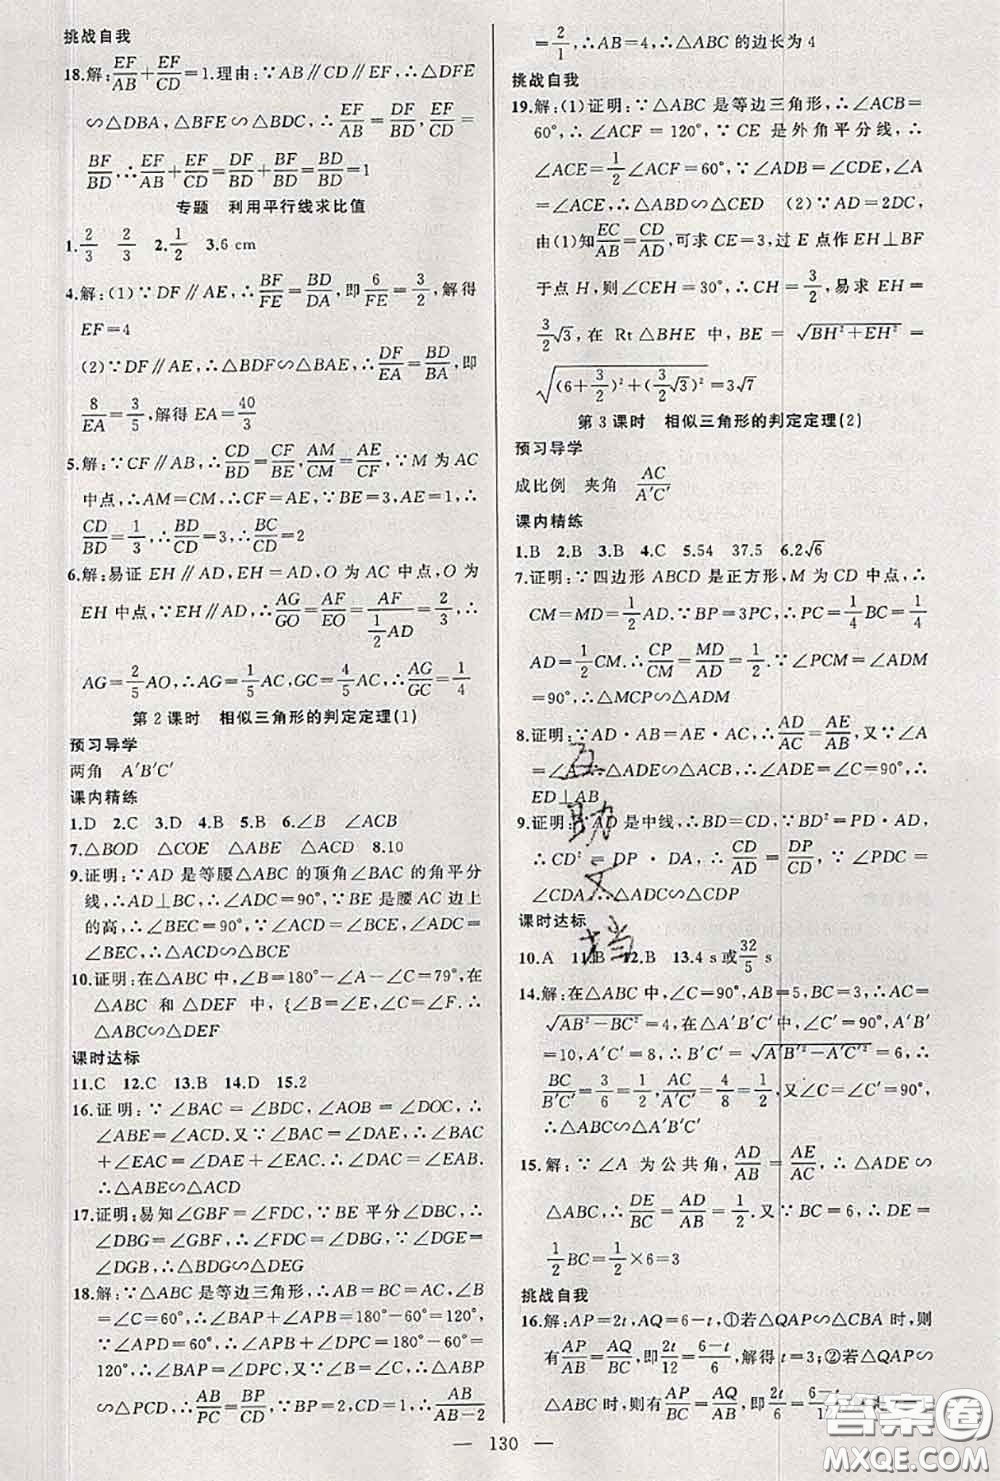 挑战自我
18.解:EF/AB+EF/CD=1.理由:∵AB∥CD∥EF,∴△DFE
∽△DBA,△BFE∽△BDC,∴EF/AB=DF/BD,EF/CD=
BF/BD.∴EF/AB+EF/CD=DF/BD+BF/BD=BD/BD=1
专题 利用平行线求比值
1.2/3 2/3 2.1/2 3.6 cm
4.解:(1)∵DF∥AE,∴BF/FE=BD/DA,即6/FE=3/2,解得
EF=4
(2)∵DF∥AE,∴△BDF∽△BAE,∴DF/EA=BD/BA,即
8/EA=3/5,解得EA=40/3
5.解:∵CF∥AB,∴CD/BD=CF/BE,AM/CM=AE/CF,∵M为AC
中点,∴AM=CM,∴CF=AE,∵BE=3,AE=1,∴
CD/BD=1/3,∴BD/CD=3,∴BC/CD=2
6.解:易证EH∥AD,EH=AD,O为AC中点,O为
EH中点,∵EH∥AD,∴AG/GO=AF/EO=AF/(1/2 AD)=2/3,∴
AG=2/5AO,∴AG=1/5AC,GC=4/5AC,∴AG/GC=1/4
第2课时 相似三角形的判定定理(1)
预习导学
两角 A′B′C′
课内精练
1.D 2.C 3.D 4.B 5.B 6.∠B ∠ACB
7.△BOD △COE △ABE △ACD 8.10
9.证明:∵AD是等腰△ABC的顶角∠BAC的角平分
线,∴AD⊥BC,∴∠ADC=90°,∵BE是腰AC边上
的高,∴∠BEC=90°,∵∠ACD=∠BCE,∠ADC=
∠BEC,∴△ACD∽△BCE
10.证明:在△ABC中,∠B=180°-∠A-∠C=79°,在
△ABC和△DEF中,{∠B=∠E,∠C=∠F.∴
△ABC∽△DEF
课时达标
11.C 12.C 13.B 14.D 15.2
16.证明:∵∠BAC=∠BDC,∠AOB=∠DOC,∴
∠ABE=∠ACD.又∵∠BAC=∠DAE,∴∠BAC
+∠EAC=∠DAE+∠EAC.∴∠DAC=∠EAB.
∴△ABE∽△ACD
17.证明:易知∠GBF=∠FDC,∵BE平分∠DBC,∴
∠DBG=∠GBF,∴∠DBG=∠FDC,∵∠DGE=
∠DGB,∴△BDG∽△DEG
18.解:∵△ABC是等边三角形,∴AB=BC=AC,∠B
=∠C=60°,∴∠BAP+∠APB=180°-60°=120°,
∵∠APD=60°,∴∠APB+∠DPC=180°-60°=
120°,∴∠BAP=∠DPC,又∵∠B=∠C,∴△ABP
∽△PCD,∴AB/PC=BP/CD,∵CD=1/2,BP=1,∴AB/AB-2
=2/1,∴AB=4,∴△ABC的边长为4
挑战自我
19.解:(1)证明:∵△ABC是等边三角形,∴∠ACB=
60°,∴∠ACF=120°,∵CE是外角平分线,∴
∠ACE=1/2∠ACF=60°,∵∠ADB=∠CDE,∠A
=∠ACE,∴△ABD∽△CED (2)∵AD=2DC,
由(1)知EC/AB=CD/AD,可求CE=3,过E点作EH⊥BF
于点H,则∠CEH=30°,∴CH=3/2,易求EH=
3/2√3,在Rt△BHE中,BE=√(BH²+EH²)=
√((6+3/2)²+(3/2√3)²)=3√7
第3课时 相似三角形的判定定理(2)
预习导学
成比例 夹角 AC/A′C′
课内精练
1.B 2.B 3.B 4.C 5.54 37.5 6.2√6
7.证明:∵四边形ABCD是正方形,M为CD中点,∴
CM=MD=1/2AD.∵BP=3PC,∴PC=1/4BC=1/4
AD=1/2CM.∴CP/CM=MD/AD=1/2,∵∠PCM=∠ADM
=90°,∴△MCP∽△ADM
8.证明:∵AD·AB=AE·AC,∴AD/AC=AE/AB,又∵∠A
=∠A,∴△ADE∽△ACB,∴∠ADE=∠C=90°,∴
ED⊥AB
9.证明:∵AD是中线,∴BD=CD,∵BD²=PD·AD,
∴CD²=DP·DA,∴CD/AD=DP/CD,∵∠PDC=
∠CDA,∴△ADC∽△CDP
课时达标
10.A 11.B 12.B 13.4 s或32/5 s
14.解:在△ABC中,∠C=90°,AB=5,BC=3,∴AC=
√(AB²-BC²)=4,在△A′B′C′中,∠C′=90°,A′B′
=10,A′C′=8,∴B′C′=√(A′B′²-A′C′²)=6,∴
BC/B′C′=3/6=1/2,AC/A′C′=4/8=1/2,又∠C=∠C′=90°,
∴△ABC∽△A′B′C′
15.解:∵∠A为公共角,AD/AB=AE/AC,∴△ADE∽
△ABC,∴DE/BC=AD/AB=1/2.又∵BC=6,∴DE=
1/2BC=1/2×6=3
挑战自我
16.解:AP=2t,AQ=6-t,①若△QAP∽△CBA时,则
有AP/AB=AQ/BC,即2t/12=6-t/6,解得t=3;②若△QAP∽
△ABC时,则有AP/BC=AQ/AB,即2t/6=6-t
— 130 —
互助文档
答案圈
MXQE.COM